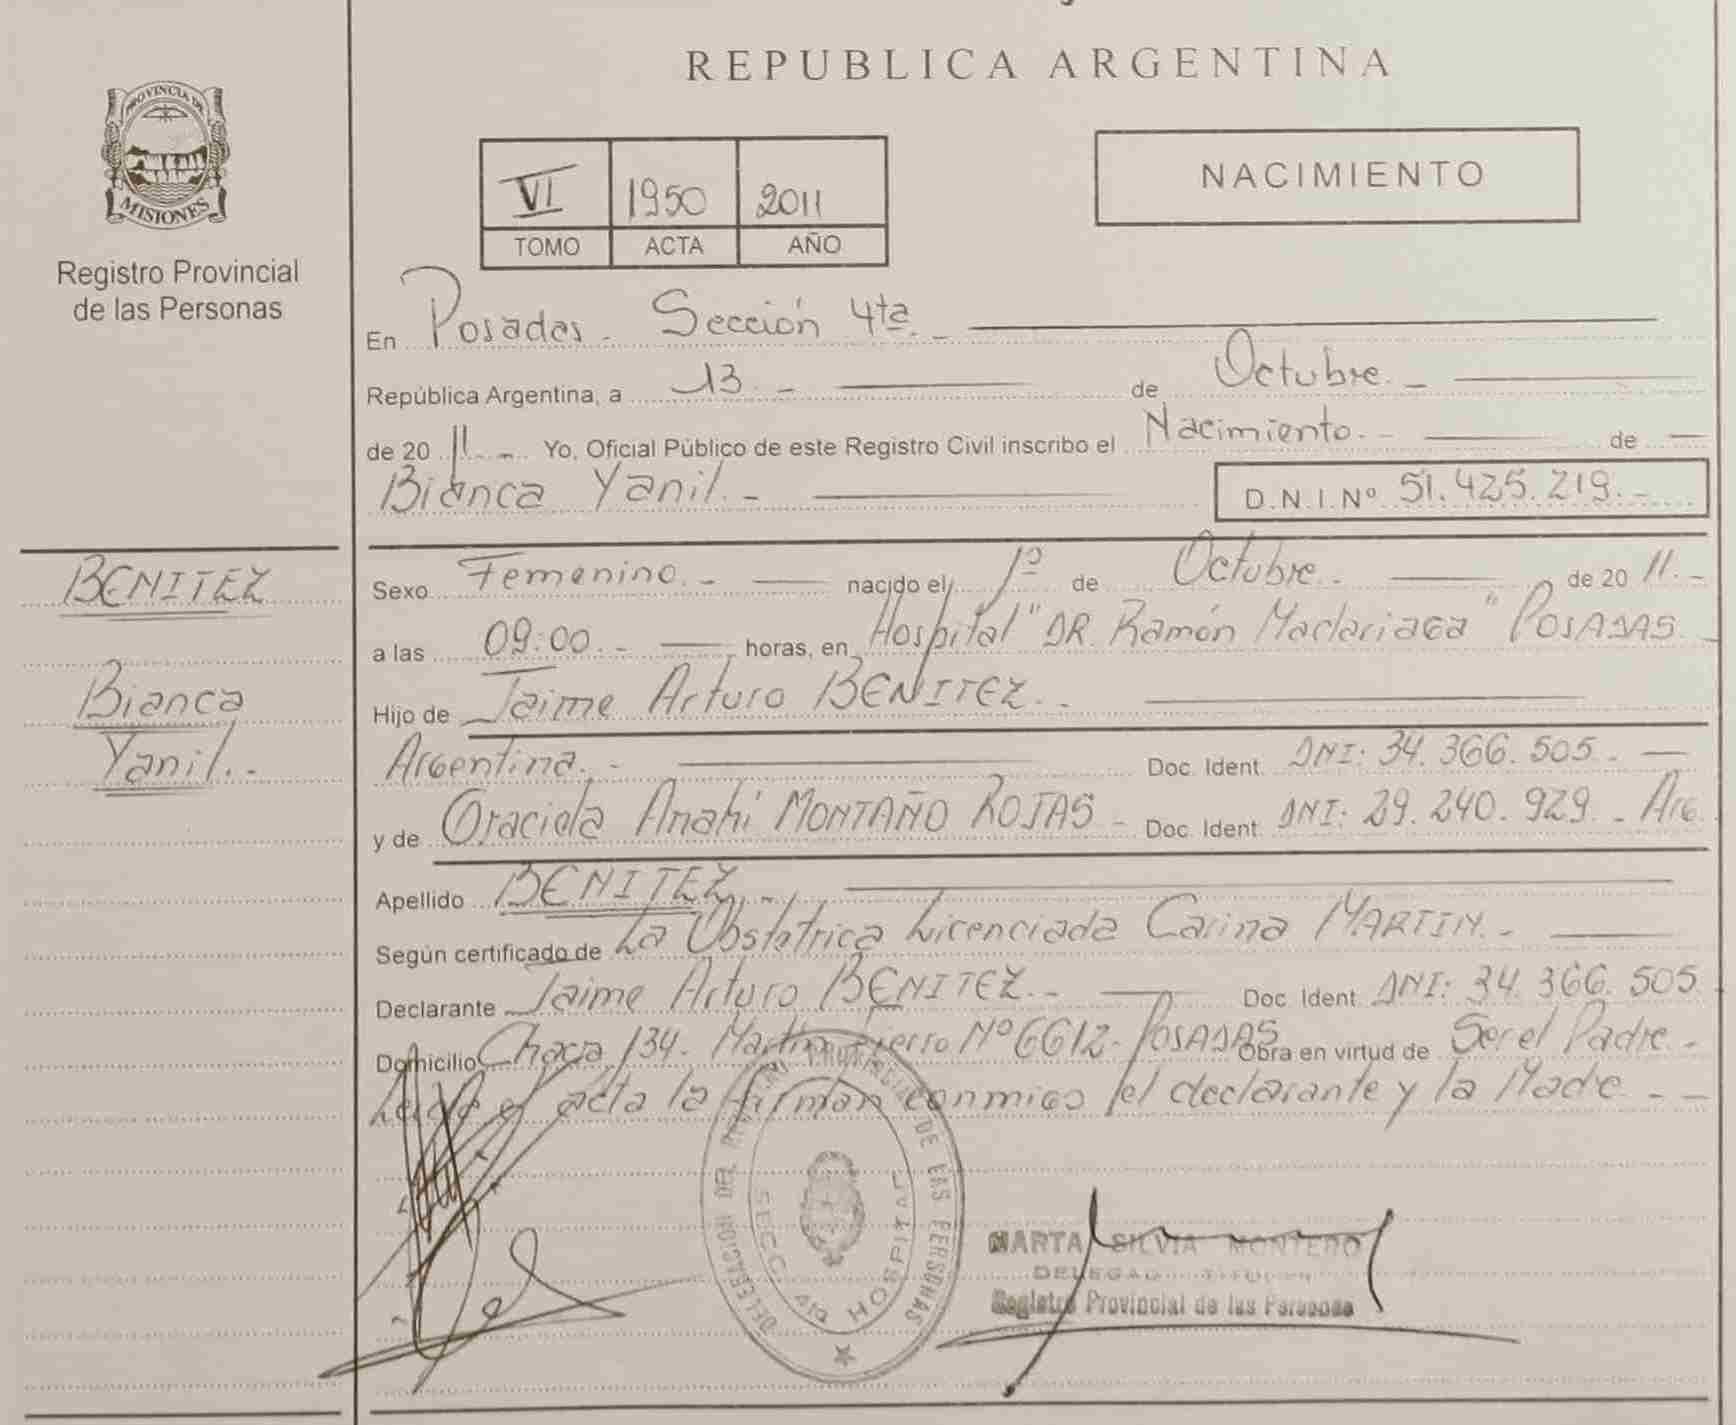 REPUBLICA ARGENTINA
PROVINCIA DE
MISIONES
Registro Provincial
de las Personas
VI 1950 2011
TOMO ACTA AÑO
NACIMIENTO
En Posadas - Sección 4ta. -
República Argentina, a 13. - de Octubre. -
de 20 11. - Yo, Oficial Público de este Registro Civil inscribo el Nacimiento. - de
Bianca Yanil. - D.N.I. Nº 51.425.219. -
BENITEZ
Bianca
Yanil. -
Sexo Femenino. - nacido el 1º de Octubre. - de 20 11. -
a las 09:00. - horas, en Hospital "DR. Ramón Madariaga" POSADAS
Hijo de Jaime Arturo BENITEZ. -
Argentina. - Doc. Ident. DNI: 34.366.505. -
y de Graciela Anahi MONTAÑO ROJAS - Doc. Ident. DNI: 29.240.929. - Arg.
Apellido BENITEZ. -
Según certificado de La Obstetrica Licenciada Carina MARTIN. -
Declarante Jaime Arturo BENITEZ. - Doc. Ident. DNI: 34.366.505
Domicilio Chacra 134. Martin Fierro Nº 6612 - POSADAS Obra en virtud de Ser el Padre. -
acta la firman conmigo el declarante y la Madre. - -
DELEGACION DEL REGISTRO PROVINCIAL DE LAS PERSONAS
SECC. 4ta HOSPITAL
MARTA SILVIA MONTERO
DELEGAD TITULAR
Registro Provincial de las Personas